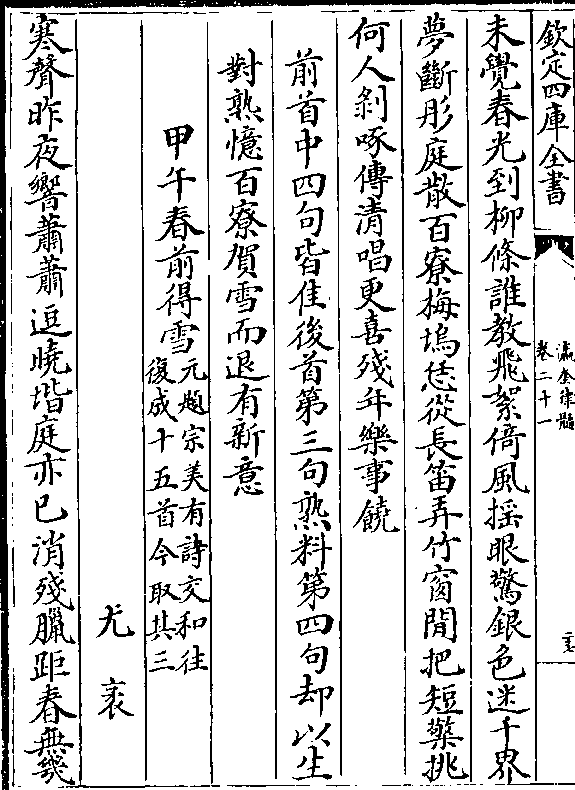 欽定四庫全書
瀛奎律髓
卷二十一
未覺春光到柳條誰教飛絮倚風揺眼驚銀色迷千界
夢斷彤庭散百寮梅塢恁從長笛弄竹窗閒把短檠挑
何人剝啄傳清唱更喜殘年樂事饒
前首中四句皆佳後首第三句熟料第四句却以生
對熟憶百寮賀雪而退有新意
甲午春前得雪元題宗美有詩交和往
復成十五首今取其三
尤袤
寒聲昨夜響蕭蕭逗曉堦庭亦已消殘臘距春無幾